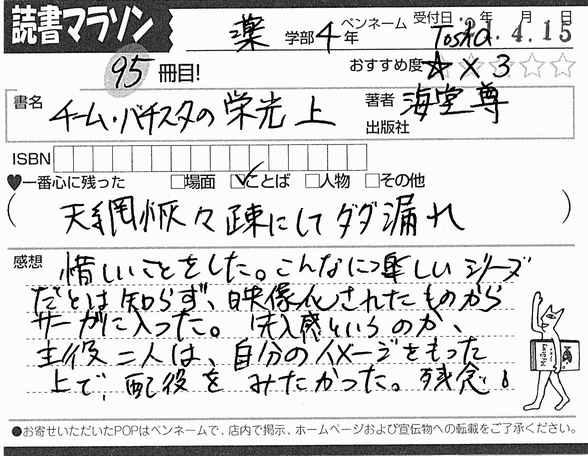 読書マラソン
薬 学部 4 年 ペンネーム Tosh.a. 受付日 年 月 日 4.15
95 冊目! おすすめ度 ☆×3 ☆☆
書名 チーム・バチスタの栄光 上 著者 海堂尊
出版社
ISBN
♥一番心に残った □場面 ☑ことば □人物 □その他
(天網恢々疎にしてダダ漏れ)
感想 惜しいことをした。こんなに楽しいシリーズ
だとは知らず、映像化されたものから
サーガに入った。先入感というのか、
主役二人は、自分のイメージをもった
上で、配役をみたかった。残念!
●お寄せいただいたPOPはペンネームで、店内で掲示、ホームページおよび宣伝物への転載をご了承ください。